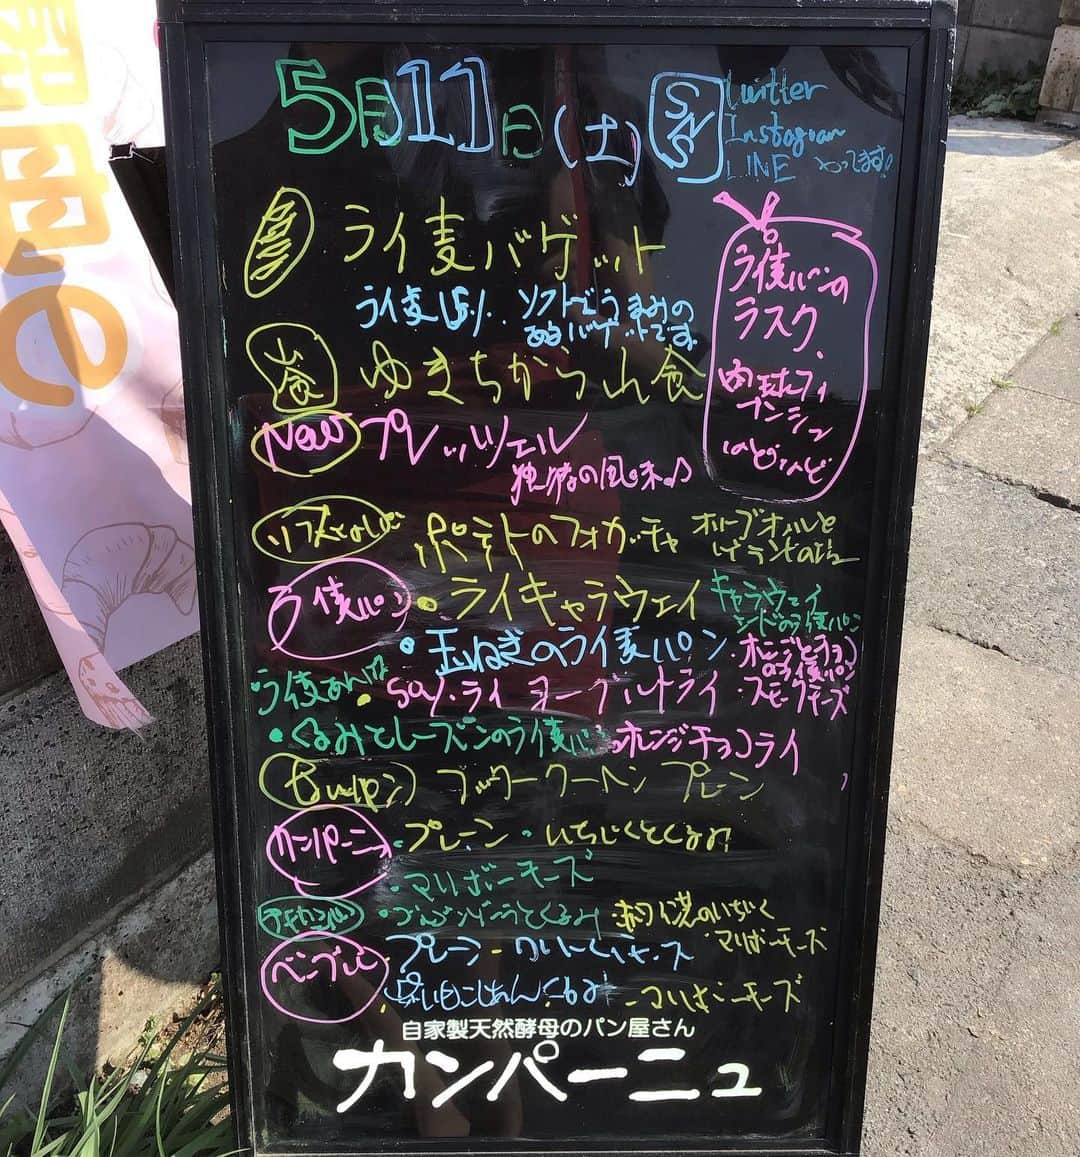 5月11日(土) SNS
Twitter
Instagram
LINE やってます!
ライ麦バゲット
ライ麦15% ソフトで
あるバゲットです
ライ麦パンの
ラスク
山食 ゆきちから山食
New プレッツェル
独特の風味♪
ポテトのフォカッチャ オリーブオイルと
ライ麦パン ・ライキャラウェイ キャラウェイ
シードのライ麦パン
・玉ねぎのライ麦パン ・オレンジとチョコ
のライ麦パン
・ライ麦あんぱん ・soy・ライ ヨーグルトライ ・スモークチーズ
・くるみとレーズンのライ麦パン オレンジチョコライ
プレーン
カンパーニュ ・プレーン ・いちじくとくるみ
・マリボーチーズ
・赤ワイン漬のいちじく
・マリボーチーズ
ベーグル ・プレーン ・クリームチーズ
・マリボーチーズ
自家製天然酵母のパン屋さん
カンパーニュ